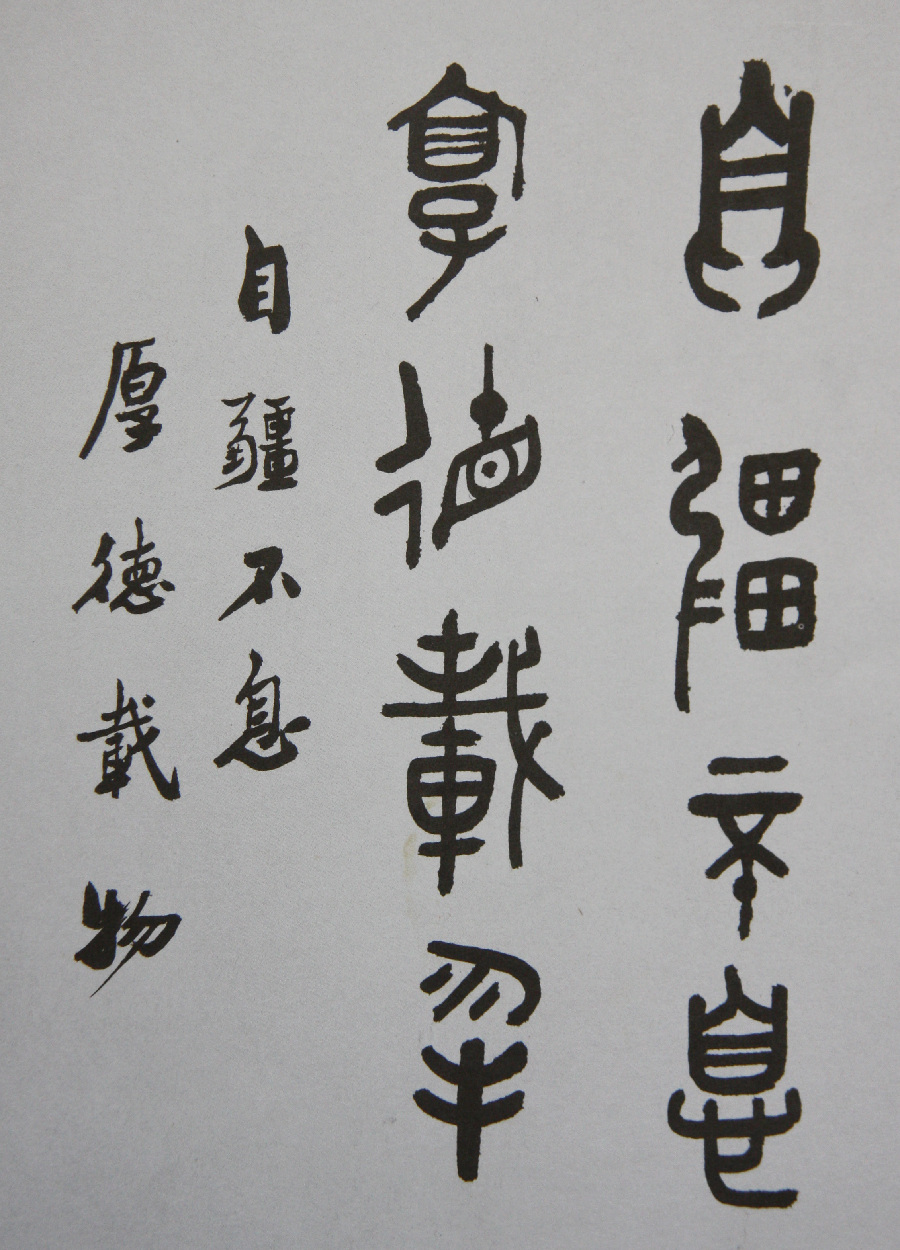 自彊不息
厚德載物
自疆不息
厚德載物